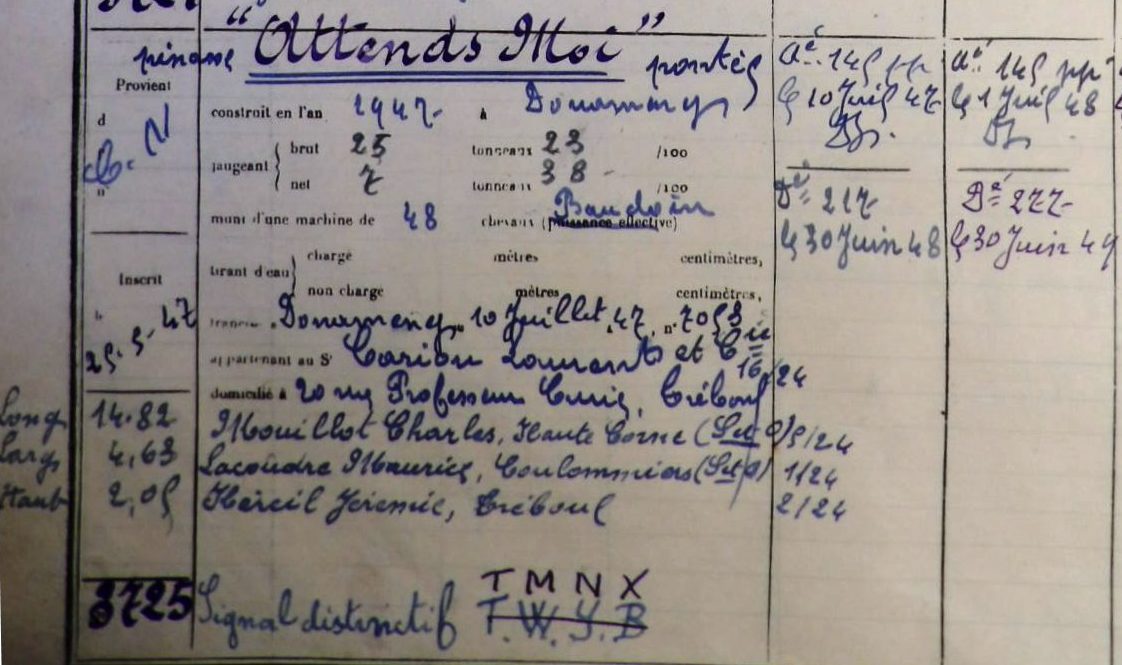 "Attends Moi"
pinasse pontée
Provient
d
C. N
n
construit en l'an 1947 à Douarnenez
jaugeant { brut 25 tonneaux 23 /100
net 7 tonneaux 38 /100
muni d'une machine de 48 chevaux (puissance effective) Baudoin
tirant d'eau } chargé mètres centimètres,
non chargé mètres centimètres,
Inscrit
le 29.5.47
francisé Douarnenez, 10 Juillet 47, n° 7053
appartenant au Sr Cariou Laurent et Cie 16/24
domicilié à 20 rue Professeur Curie, Tréboul
Long 14.82 Mouillot Charles, Haute Corne (S et O) 5/24
Larg 4,63 Lacoudre Maurice, Coulommiers (S et O) 1/24
Haut 2,05 Hereil Jérémie, Tréboul 2/24
3725 Signal distinctif T M N X
T. W. Y. B
Aé 145 pp
le 10 Juil 47
Dz.
Dé 217
le 30 Juin 48
Aé 145 pp
le 1 Juil 48
Dz
Dé 277
le 30 Juin 49